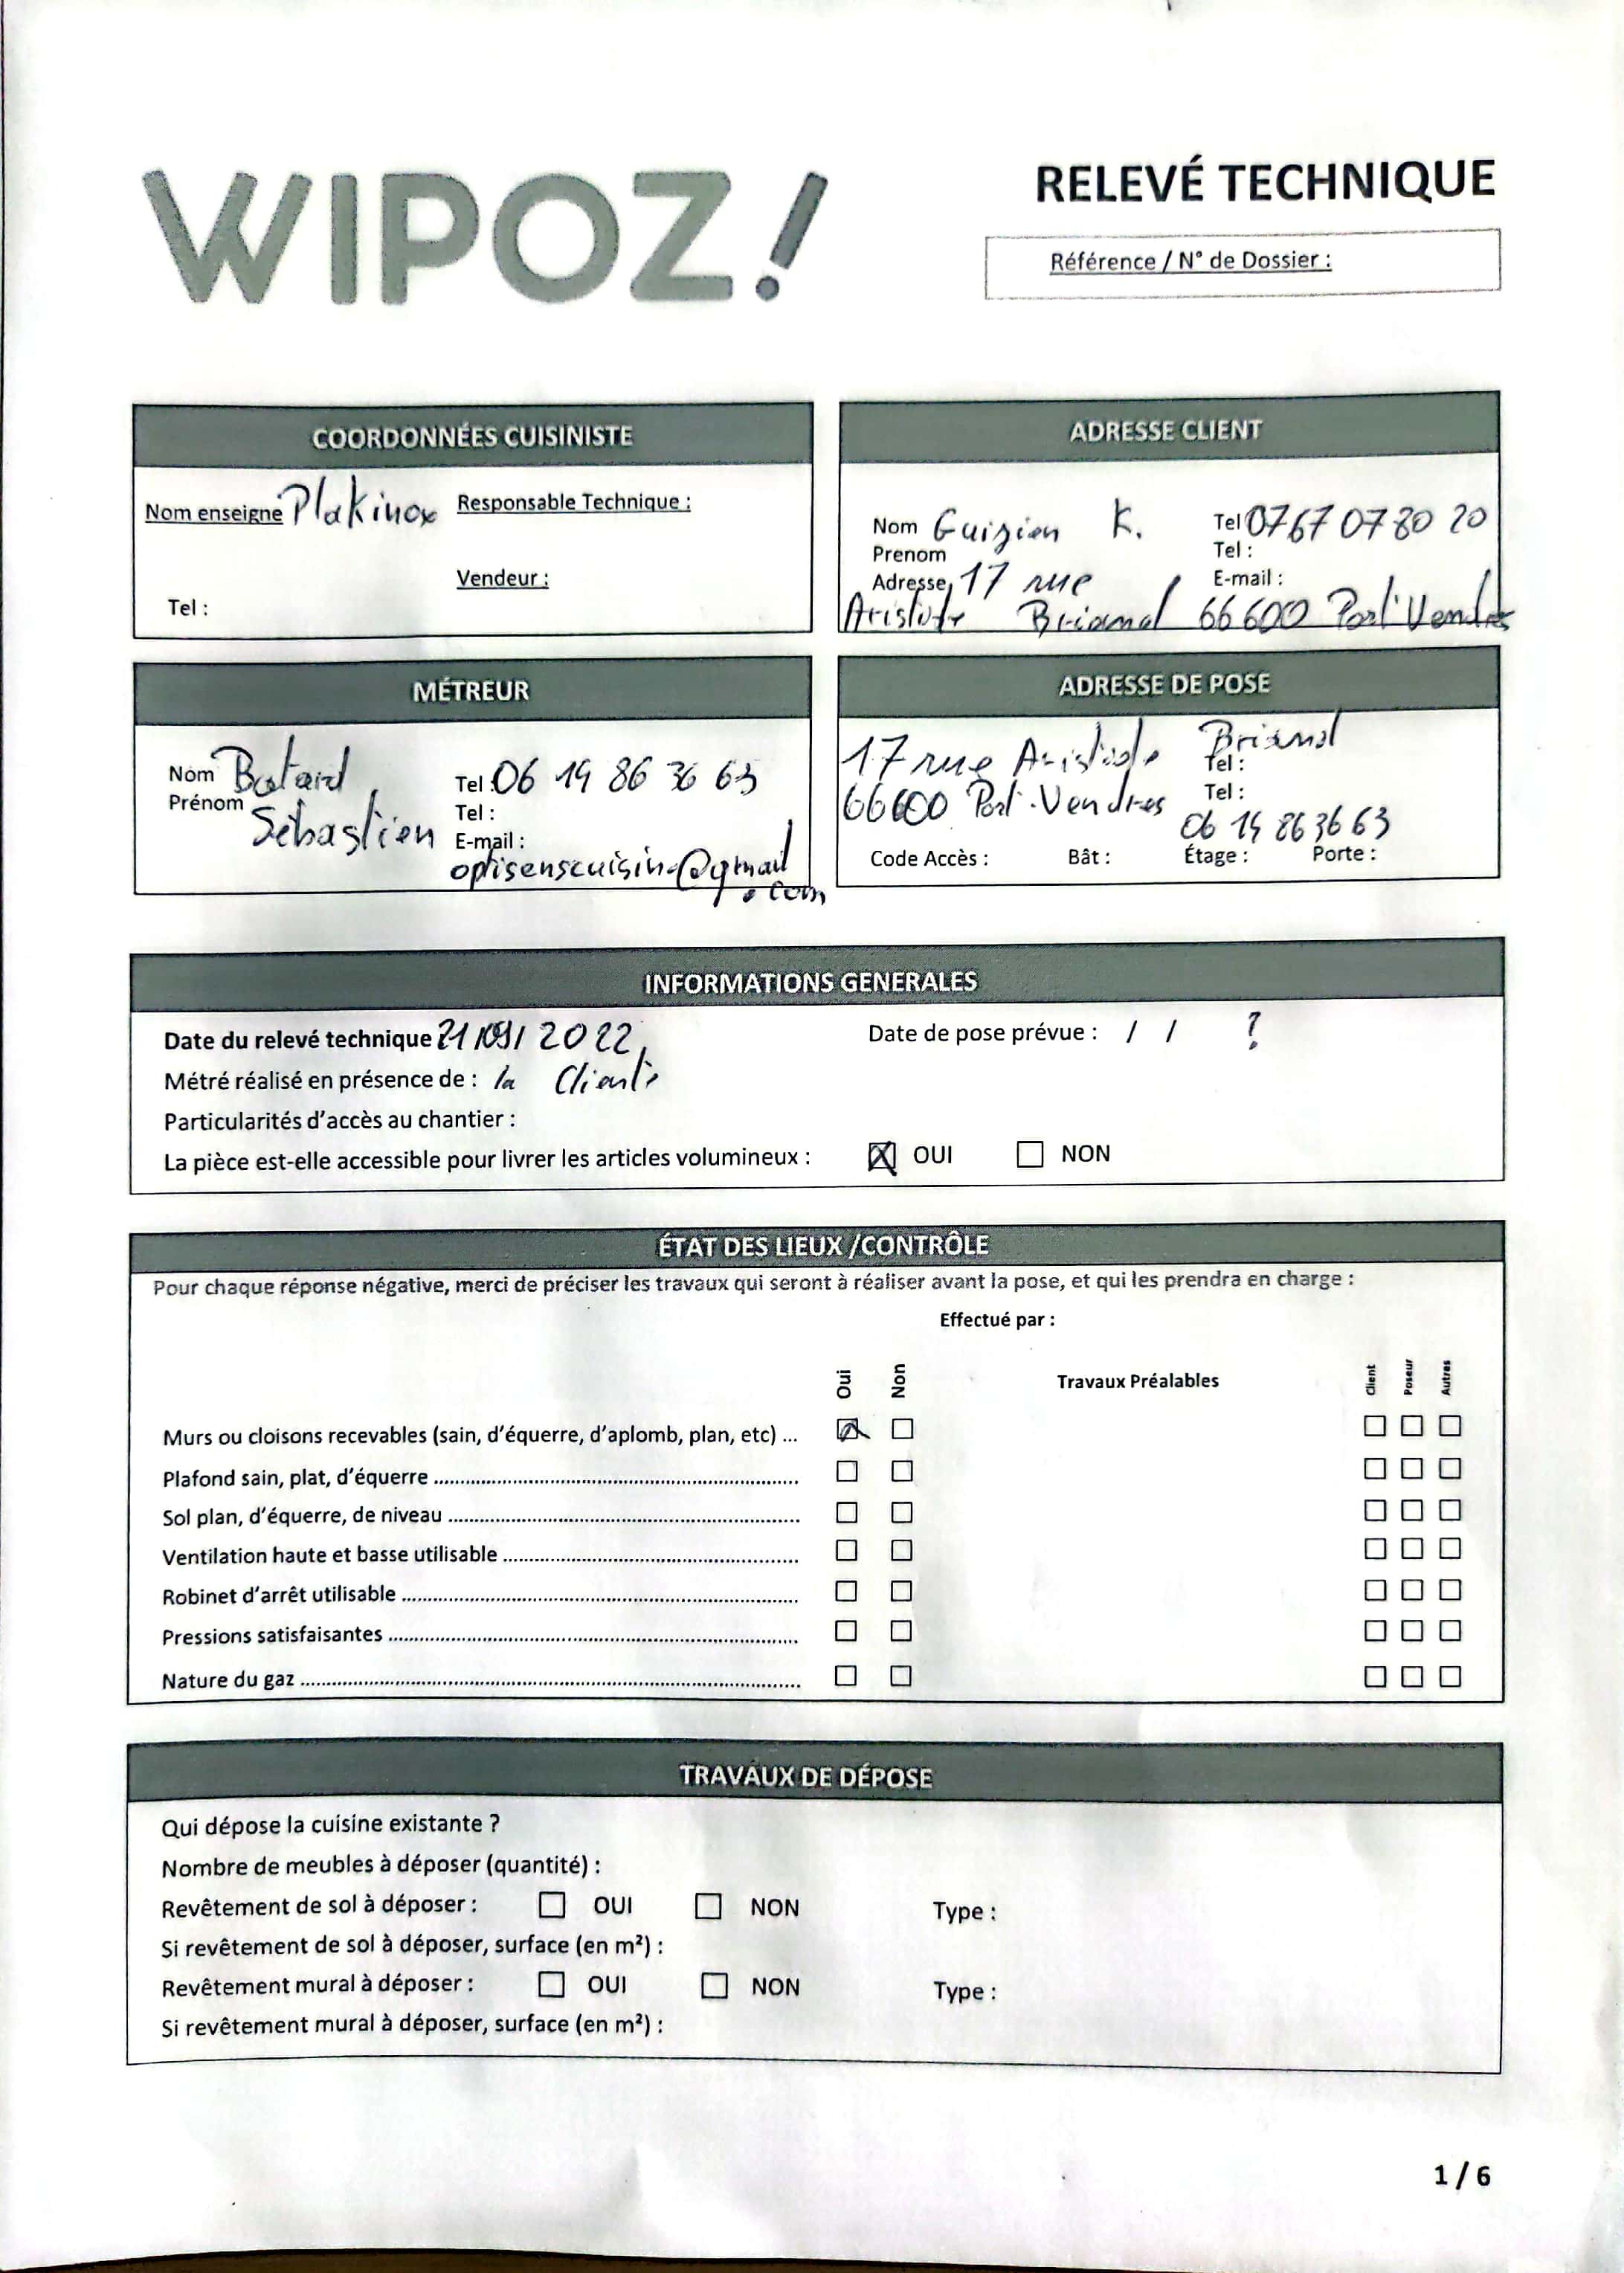 WIPOZ!
RELEVÉ TECHNIQUE
Référence / N° de Dossier :
COORDONNÉES CUISINISTE
Nom enseigne Plakinox Responsable Technique :
Vendeur :
Tel :
ADRESSE CLIENT
Nom Guizien K. Tel 07 67 07 80 20
Prenom Tel :
Adresse, 17 rue E-mail :
Aristide Briand 66600 Port Vendres
MÉTREUR
Nom Batard Tel : 06 19 86 36 63
Prénom Tel :
Sébastien E-mail :
optisenscuisine@gmail
.com
ADRESSE DE POSE
17 rue Aristide Briand
Tel :
66600 Port-Vendres Tel :
06 19 86 36 63
Code Accès : Bât : Étage : Porte :
INFORMATIONS GENERALES
Date du relevé technique 21/09/2022 Date de pose prévue : / / ?
Métré réalisé en présence de : la Cliente
Particularités d'accès au chantier :
La pièce est-elle accessible pour livrer les articles volumineux : OUI NON
ÉTAT DES LIEUX /CONTRÔLE
Pour chaque réponse négative, merci de préciser les travaux qui seront à réaliser avant la pose, et qui les prendra en charge :
Effectué par :
Oui Non Travaux Préalables Client Poseur Autres
Murs ou cloisons recevables (sain, d'équerre, d'aplomb, plan, etc) ...
Plafond sain, plat, d'équerre
Sol plan, d'équerre, de niveau
Ventilation haute et basse utilisable
Robinet d'arrêt utilisable
Pressions satisfaisantes
Nature du gaz
TRAVAUX DE DÉPOSE
Qui dépose la cuisine existante ?
Nombre de meubles à déposer (quantité) :
Revêtement de sol à déposer : OUI NON Type :
Si revêtement de sol à déposer, surface (en m²) :
Revêtement mural à déposer : OUI NON Type :
Si revêtement mural à déposer, surface (en m²) :
1 / 6